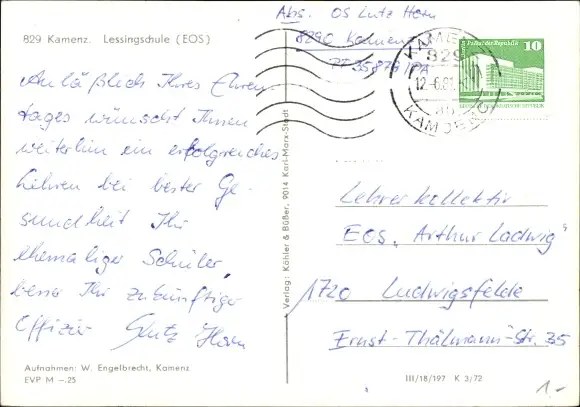 829 Kamenz. Lessingschule (EOS)
Abs. OS Lutz Horn
8290 Kamenz
PF 35878/PA
KAMENZ
829
12.-6.81
KAMJENC
Palast der Republik 10
Anläßlich Ihres Ehren-
tages wünscht Ihnen
weiterhin ein erfolgreiches
Lehren bei bester Ge-
sundheit Ihr
ehemaliger Schüler,
bzw. Ihr zukünftiger
Offizier Lutz Horn
Verlag: Köhler & Büßer, 9014 Karl-Marx-Stadt
Lehrerkollektiv
EOS „Arthur Ladwig"
1720 Ludwigsfelde
Ernst-Thälmann-Str. 35
Aufnahmen: W. Engelbrecht, Kamenz
EVP M –.25
III/18/197 K 3/72
1.-